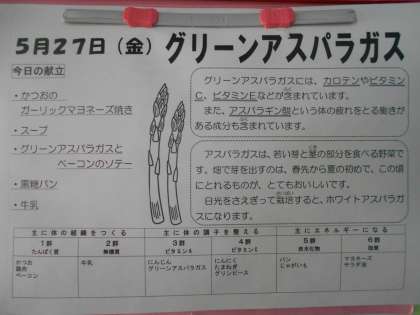 5月27日（金）グリーンアスパラガス
今日の献立
・かつおの
ガーリックマヨネーズ焼き
・スープ
・グリーンアスパラガスと
ベーコンのソテー
・黒糖パン
・牛乳
グリーンアスパラガスには、カロテンやビタミン
C、ビタミンEなどが含まれています。
また、アスパラギン酸という体の疲れをとる働きが
ある成分も含まれています。
アスパラガスは、若い芽と茎の部分を食べる野菜で
す。畑で芽を出すのは、春先から夏の初めで、この頃
にとれるものが、とてもおいしいです。
日光をさえぎって栽培すると、ホワイトアスパラガ
スになります。
主に体の組織をつくる 主に体の調子を整える 主にエネルギーになる
1群 2群 3群 4群 5群 6群
たんぱく質 無機質 ビタミンA ビタミンC 炭水化物 脂質
かつお 牛乳 にんじん にんにく パン マヨネーズ
グリーンアスパラガス たまねぎ じゃがいも サラダ油
ベーコン グリンピース